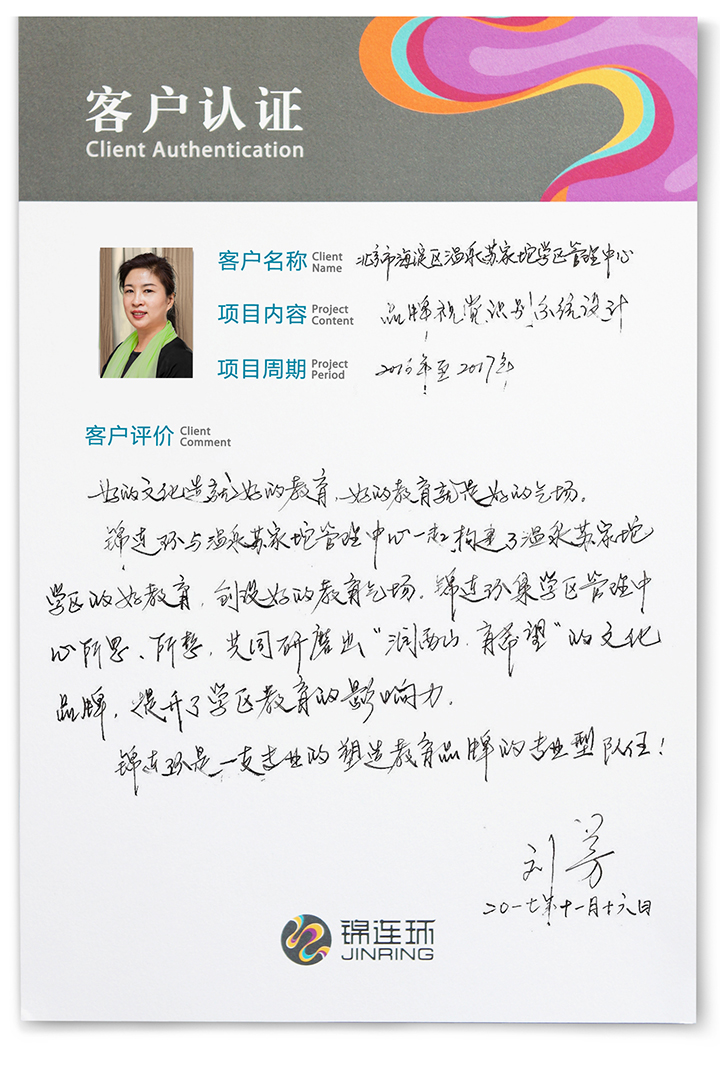 客户认证
Client Authentication
客户名称 Client Name 北京市海淀区温泉苏家坨学区管理中心
项目内容 Project Content 品牌视觉识别系统设计
项目周期 Project Period 2016年至2017年
客户评价 Client Comment
好的文化造就好的教育，好的教育就是好的气场。
锦连环与温泉苏家坨管理中心一起构建了温泉苏家坨
学区的好教育，创设好的教育气场。锦连环集学区管理中
心所思、所想，共同研磨出“润西山，育希望”的文化
品牌，提升了学区教育的影响力。
锦连环是一支专业的塑造教育品牌的专业型队伍！
刘芳
二〇一七年十一月十六日
锦连环
JINRING